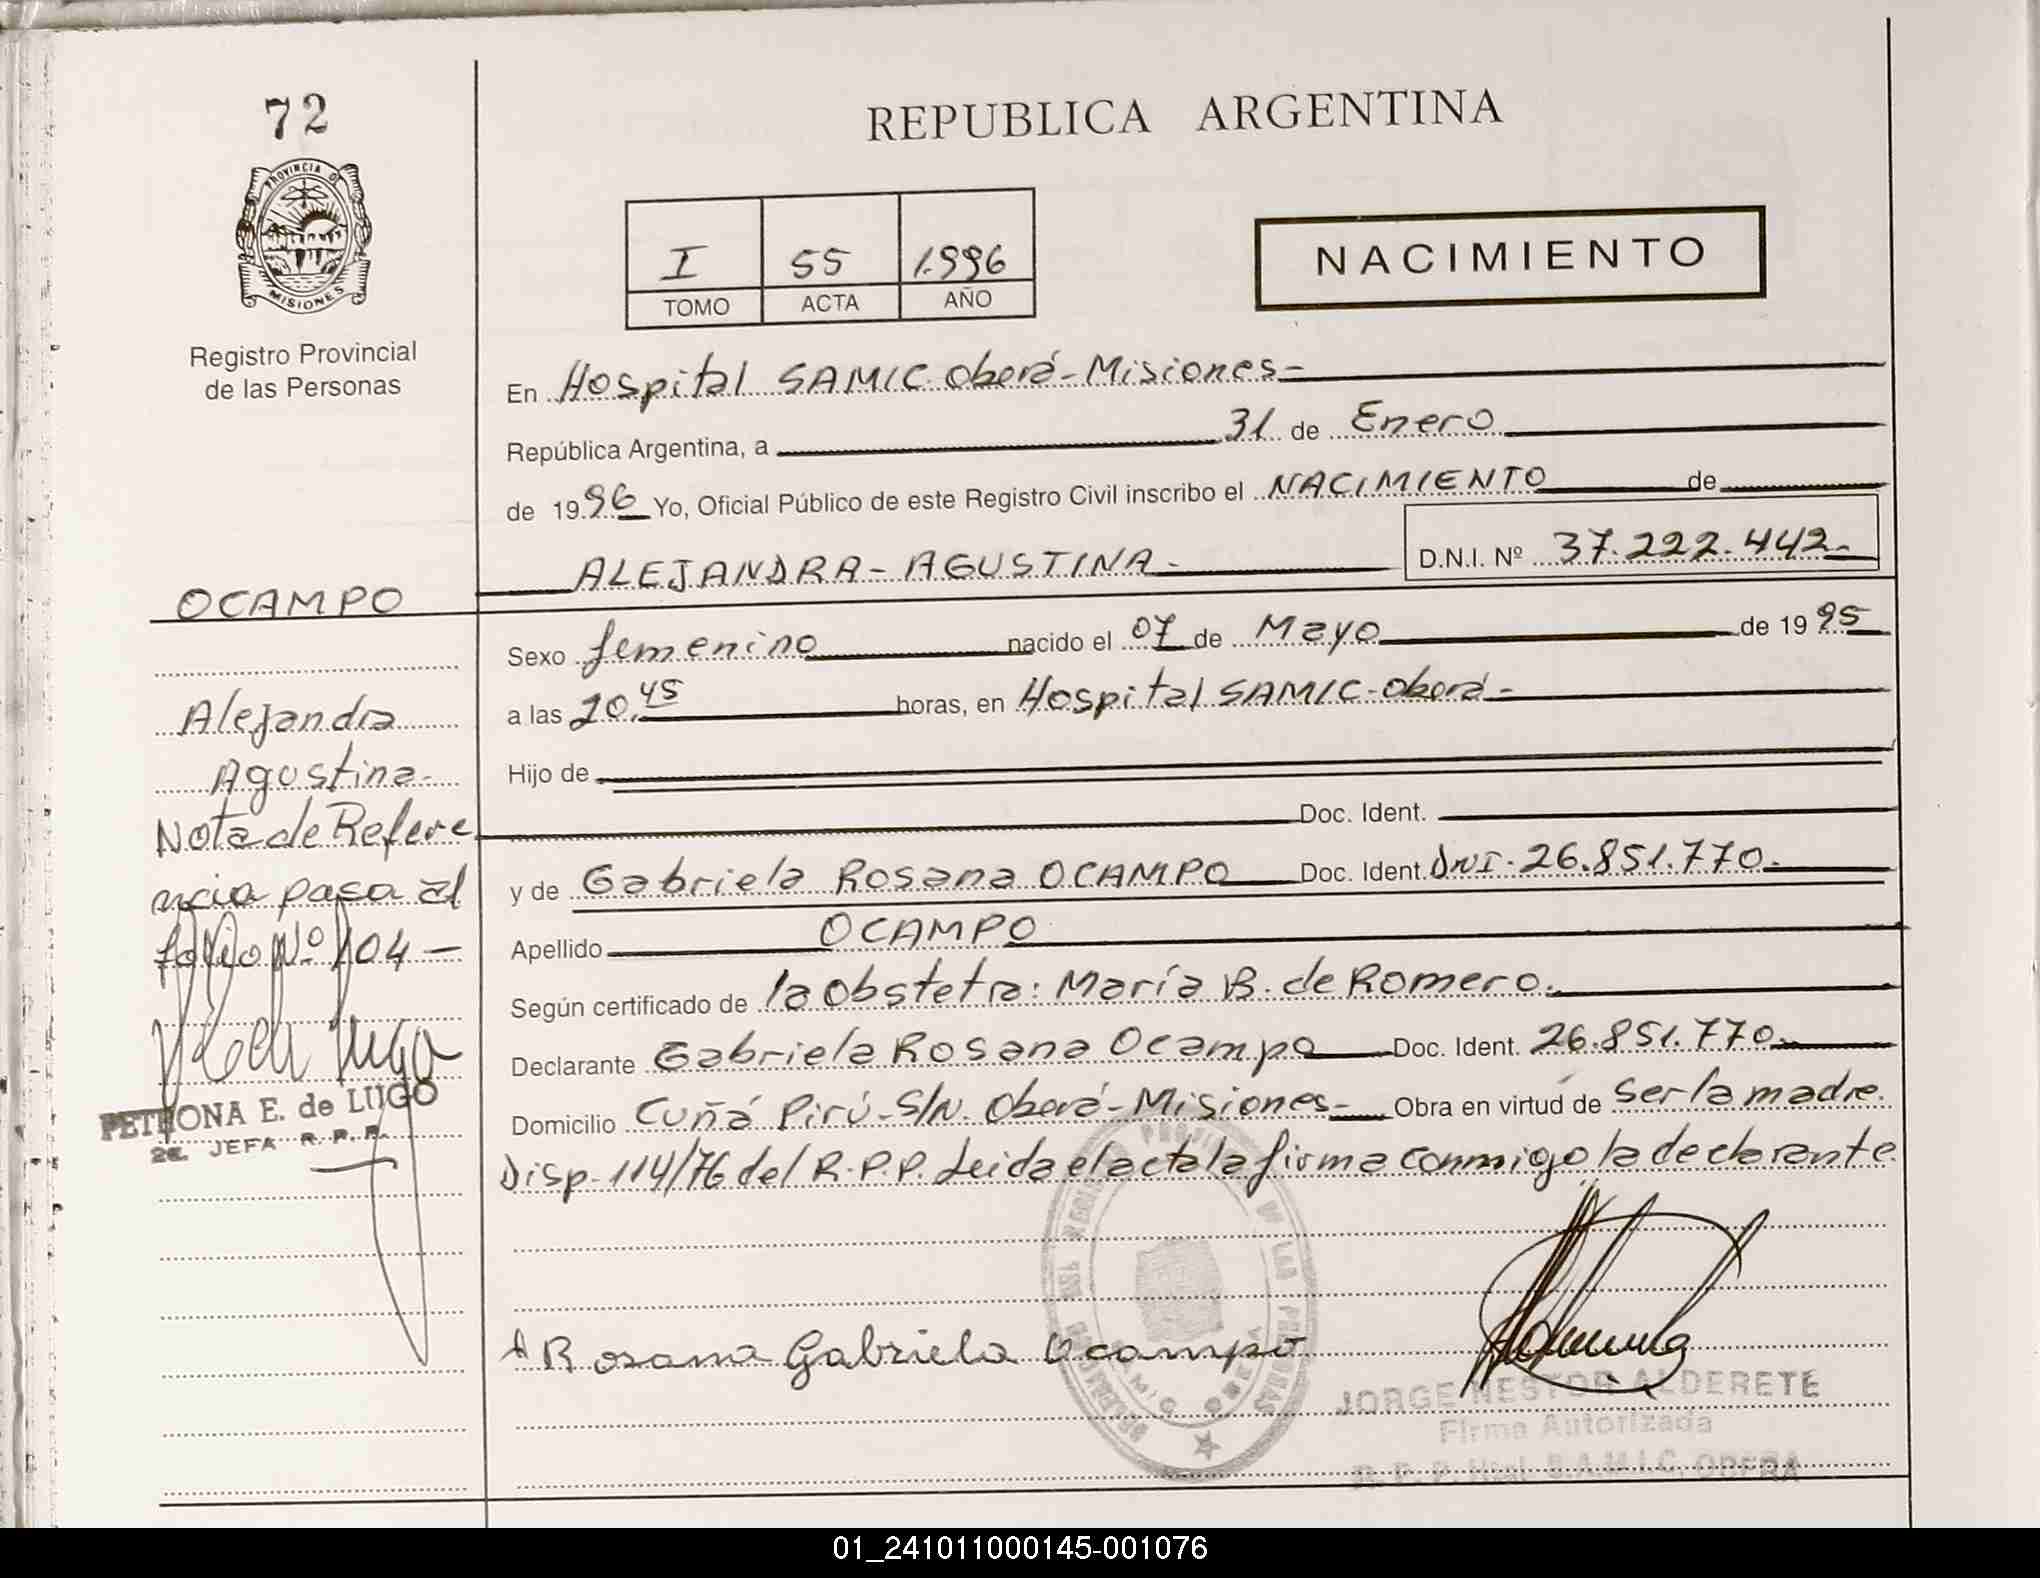 72
PROVINCIA D
MISIONES
Registro Provincial
de las Personas
OCAMPO
Alejandra
Agustina-
Nota de Refere
ncia pasa al
folio Nº 104-
Lugo
PETRONA E. de LUGO
2ª. JEFA R. P. P.
REPUBLICA ARGENTINA
I 55 1.996
TOMO ACTA AÑO
NACIMIENTO
En Hospital SAMIC. Oberá-Misiones-
República Argentina, a 31 de Enero
de 1996 Yo, Oficial Público de este Registro Civil inscribo el NACIMIENTO de
ALEJANDRA-AGUSTINA- D.N.I. Nº 37.222.442-
Sexo femenino nacido el 07 de Mayo de 1995
a las 20.45 horas, en Hospital SAMIC-Oberá-
Hijo de
Doc. Ident.
y de Gabriela Rosana OCAMPO Doc. Ident. DNI-26.851.770-
Apellido OCAMPO
Según certificado de la obstetra: María B. de Romero.
Declarante Gabriela Rosana Ocampo Doc. Ident. 26.851.770-
Domicilio Cuñá Pirú-S/N. Oberá-Misiones- Obra en virtud de ser la madre.
Disp-114/76 del R.P.P. Leida el acta la firma conmigo la declarante
Rosana Gabriela Ocampo
JORGE NESTOR ALDERETE
Firma Autorizada
S.A.M.I.C. OBERA
01_241011000145-001076